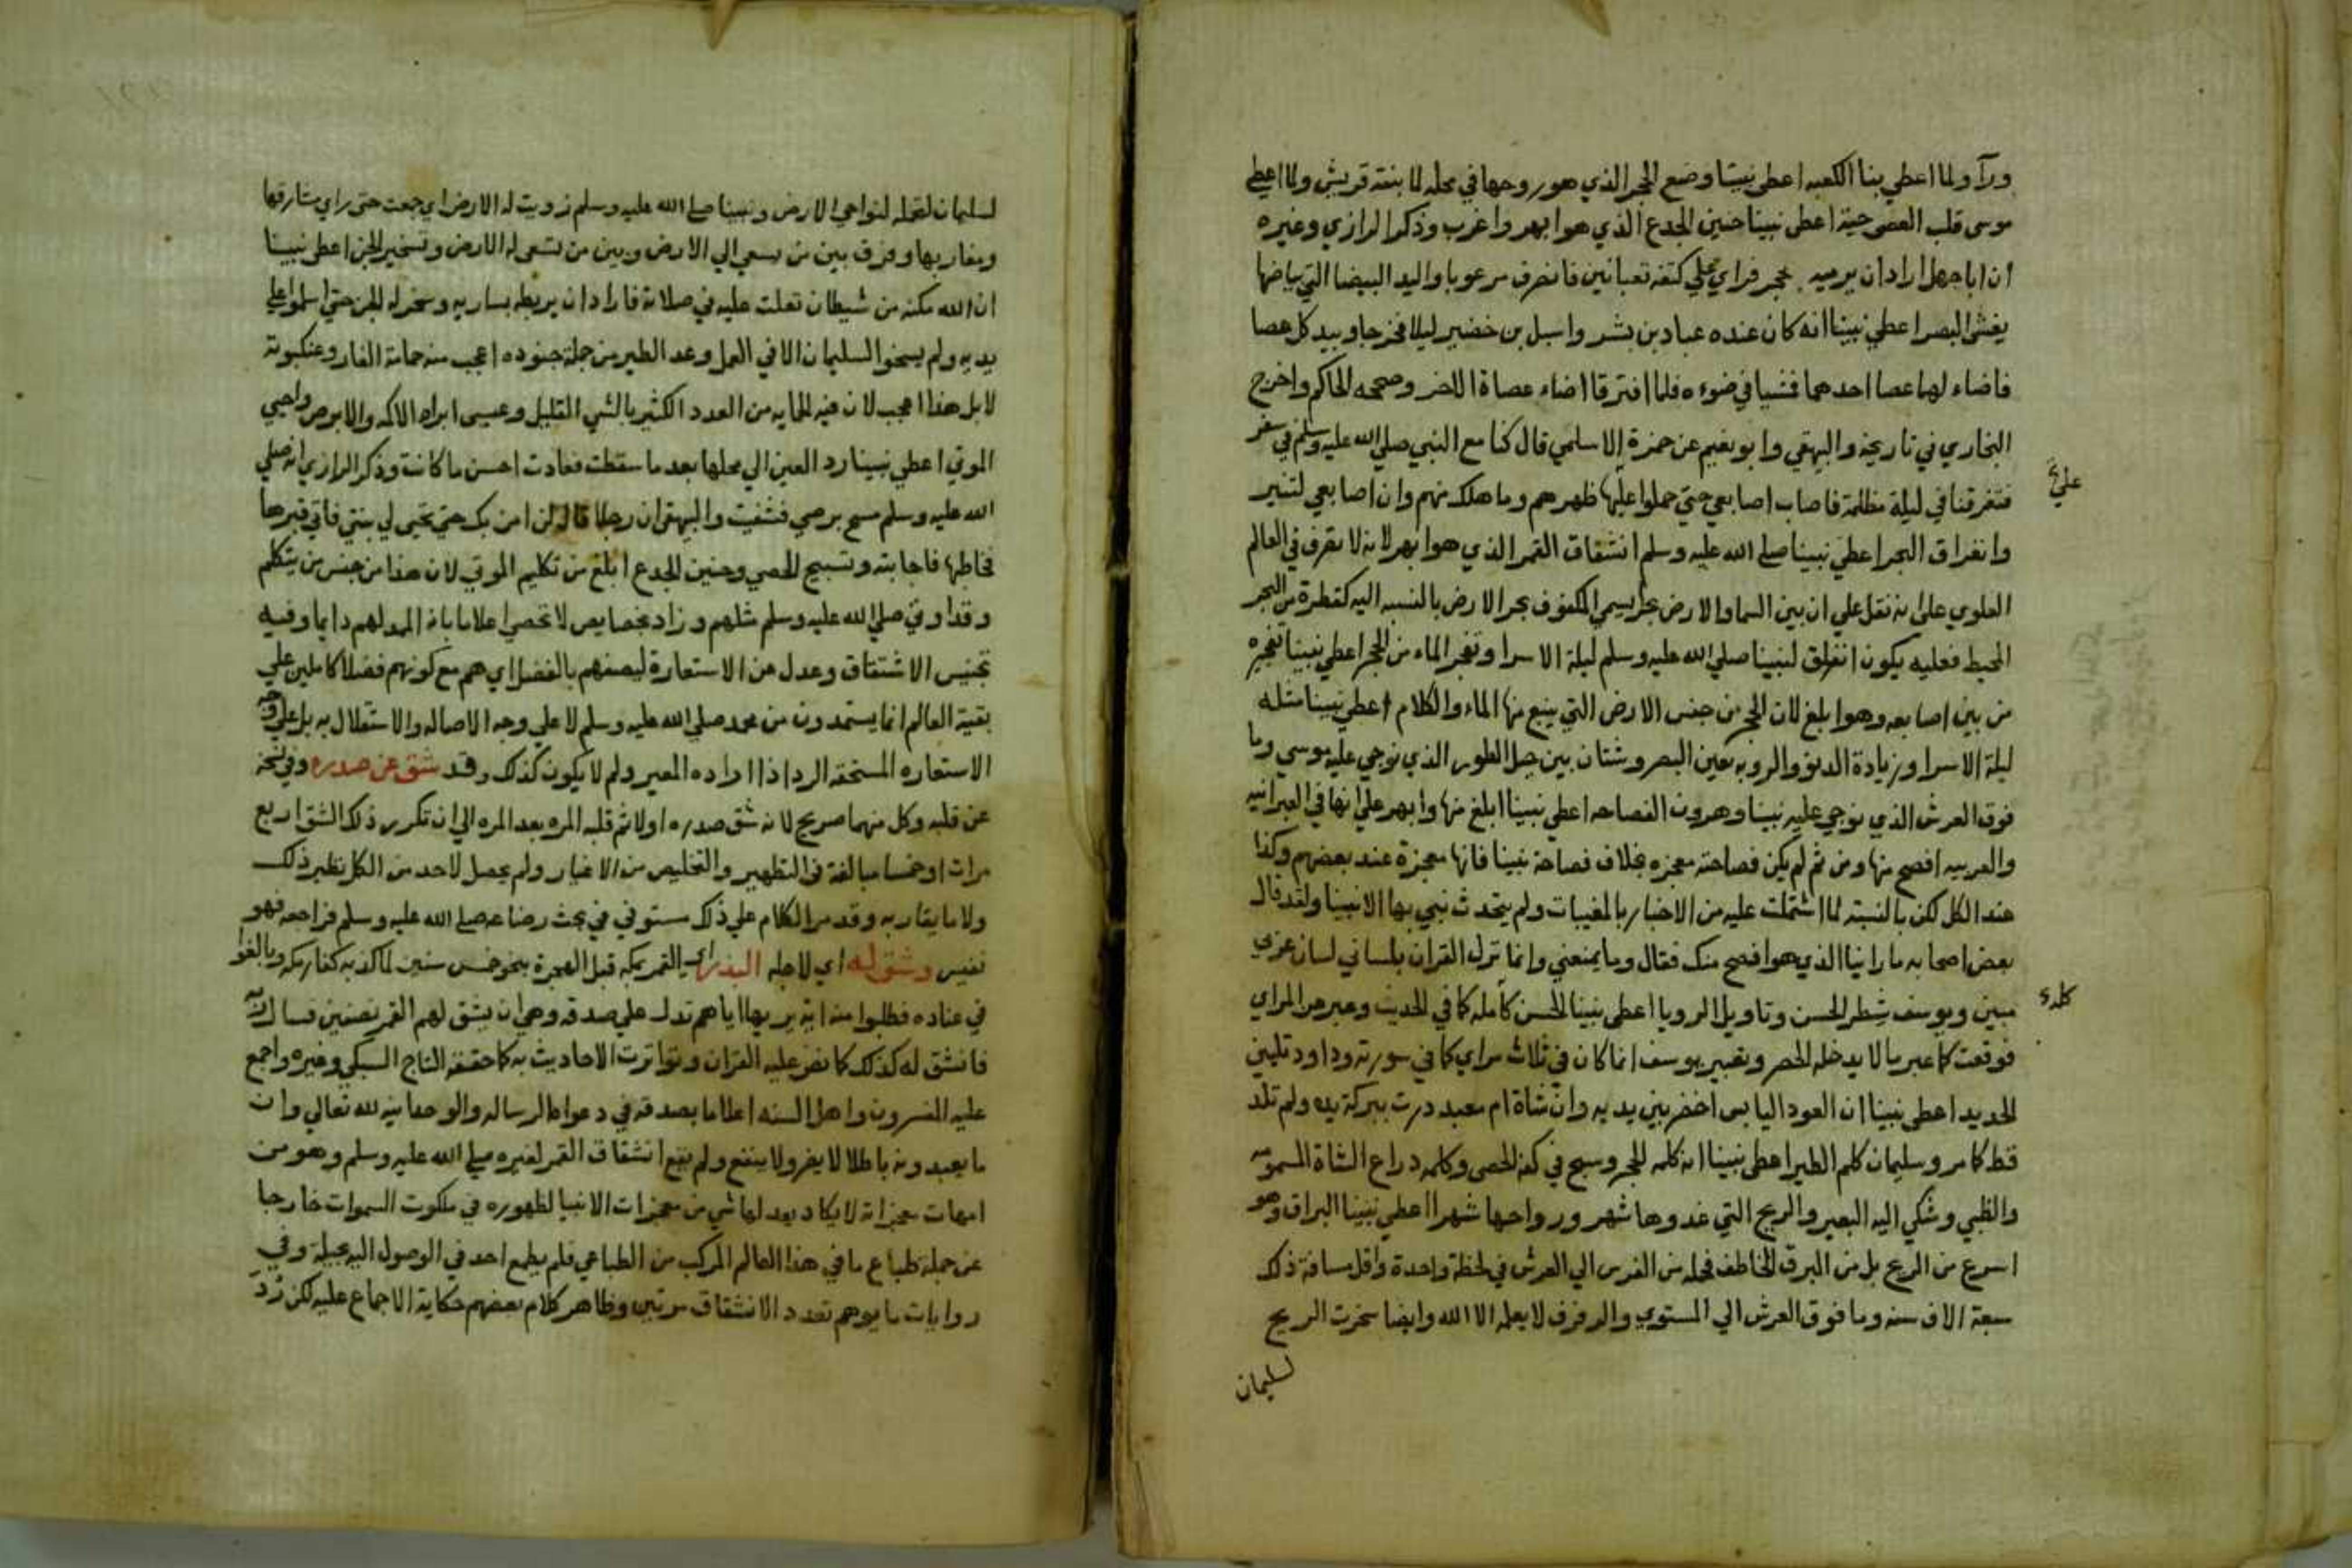 ورآ ولما اعطي بنا الكعبه اعطى نبينا وضع الحجر الذي هو روحها في محله لما بنته قريش ولما اعطي
موسى قلب العصى حية اعطى نبينا حنين الجدع الذي هو ابهر واغرب وذكر الرازي وغيره
ان ابا جهل اراد ان يرميه بحجر فراي علي كتفه تعبانين فانصرف مرعوبا واليد البيضا التي بياضها
يغشى البصر اعطي نبينا انه كان عنده عباد بن بشر واسيل بن خضير ليلا فخرجا وبيد كل عصا
فاضاء لهما عصا احدهما فمشيا في ضوءه فلما افترقا اضاء عصاة الاخر وصححه الحاكم واخرج
البخاري في تاريخه والبيهقي وابو نعيم عن حمزة الاسلمي قال كنا مع النبي صلي الله عليه وسلم في سفر
فتفرقنا في ليلة مظلمة فاصاب اصابعي حتي حملوا عليها ظهرهم وما هلك منهم وان اصابعي لتنير
وانفراق البحر اعطي نبينا صلى الله عليه وسلم انشقاق القمر الذي هو ابهر لانه لا تصرف في العالم
العلوي على انه نقل علي ان بين السما والارض بحرا يسمي المكفوف بحر الارض بالنسبه اليه كقطرة من البحر
المحيط فعليه يكون انفلق لنبينا صلي الله عليه وسلم ليلة الاسرا وتفجر الماء من الحجر اعطي نبينا تفجره
من بين اصابعه وهو ابلغ لان الحجر من جنس الارض التي ينبع منها الماء والكلام اعطي نبينا مثله
ليلة الاسرا وزيادة الدنو والرويه بعين البصر وشتان بين جبل الطور الذي نوجي عليه موسي وما
فوق العرش الذي نوجي عليه نبينا وهرون الفصاحه اعطي نبينا ابلغ منها وابهر علي انها في العبرانيه
والعربيه افصح منها ومن ثم لم يكن فصاحته معجزه بخلاف فصاحة نبينا فانها معجزة عند بعضهم وكذا
عند الكل لكن بالنسبة لما اشتملت عليه من الاخبار بالمغيبات ولم يتحدث نبي بها الا نبينا ولقد قال
بعض اصحابه ما راينا الذي هو افصح منك فقال وما يمنعني وانما نزل القران بلساني لسان عربي
مبين ويوسف شطر الحسن وتاويل الرويا اعطى نبينا الحسن كله كما في الحديث وعبر من المراي
فوقعت كما عبر ما لا يدخله الحصر وتعبير يوسف انما كان في ثلاث مراي كما في سورته وداود تليين
الحديد اعطي نبينا ان العود اليابس اخضر بين يديه وان شاة ام معبد درت ببركة يده ولم تلد
قط كما مر وسليمان كلم الطير اعطى نبينا انه كلمه الحجر وسبح في كفه الحصى وكلمه دراع الشاة المسمومه
والظبي وشكي اليه البعير والريح التي غدوها شهر ورواحها شهر اعطي نبينا البراق وهو
اسرع من الريح بل من البرق الخاطف فحمله من الفرس الي العرش في لحظة واحدة واقل مسافة ذلك
سبعة الاف سنه وما فوق العرش الي المستوي والرفرف لا يعلمه الا الله وايضا سخرت الريح
لسليمان
لسليمان لتحمله لنواحي الارض ونبينا صلى الله عليه وسلم زويت له الارض اي جمعت حتى راي مشارقها
ومغاربها وفرق بين من يسعي الي الارض وبين من تسعى له الارض وتسخير الجن اعطى نبينا
ان الله مكنه من شيطان تفلت عليه في صلاته فاراد ان يربطه بساريه وسخر له الجن حتي اسلموا علي
يديه ولم يسخروا لسليمان الا في العمل وعد الطير من جملة جنوده اعجب منه حمامة الغار وعنكبوته
لا بل هذا اعجب لان فيه الحمايه من العدد الكثير بالشي القليل وعيسى ابراه الاكمه والابرص واحيي
الموتي اعطي نبينا رد العين الي محلها بعد ما سقطت فعادت احسن ما كانت وذكر الرازي انه صلي
الله عليه وسلم مسح برصي فشفيت والبيهقي ان رجلا قال له لن امن بك حتي تحيى لي بنتي فاتي قبرها
فخاطبها فاجابته وتسبيح الحصي وحنين الجدع ابلغ من تكليم الموتي لان هذا من جنس من يتكلم
وقد اوتي صلي الله عليه وسلم مثلهم وزاد بخصايص لا تحصي اعلاما بانه الممد لهم دايما وفيه
تجنيس الاشتقاق وعدل عن الاستعارة ليصفهم بالفضل اي هم مع كونهم فضلا كاملين علي
بقية العالم انما يستمدون من محمد صلي الله عليه وسلم لا علي وجه الاصاله والاستقلال به بل علي وجه
الاستعاره المستحقه الرد اذا اراده المعير ولم لا يكون كذلك وقد شق عن صدره وفي نسخة
عن قلبه وكل منهما صريح لانه شق صدره اولا ثم قلبه المره بعد المره الي ان تكرر ذلك الشق اربع
مرات او خمسا مبالغة في التطهير والتخليص من الاغيار ولم يحصل لاحد من الكل نظير ذلك
ولا ما يقاربه وقد مر الكلام علي ذلك مستوفي في بحث رضاعه صلى الله عليه وسلم فراجعه فهو
نفيس وشق له اي لاجله البدر اي القمر بمكه قبل الهجرة بنحو خمس سنين لما كذبه كفار مكه وبالغوا
في عناده فطلبوا منه اية يريها اياهم تدل علي صدقه وهي ان يشق لهم القمر نصفين فسال ربه
فانشق له كذلك كما نص عليه القران وتواترت الاحاديث به كما حققه التاج السبكي وغيره واجمع
عليه المفسرون واهل السنه اعلاما بصدقه في دعواه الرساله والوحدانيه لله تعالي وان
ما يعبدونه باطلا لا يضر ولا ينفع ولم يقع انشقاق القمر لغيره صلى الله عليه وسلم وهو من
امهات معجزاته لا يكاد يعد لها شي من معجزات الانبيا لظهوره في ملكوت السموات خارجا
عن جملة طباع ما في هذا العالم المركب من الطباعي فلم يطمع احد في الوصول اليه بحيلة وفي
روايات ما يوهم تعدد الانشقاق مرتين وظاهر كلام بعضهم حكاية الاجماع عليه لكن رد